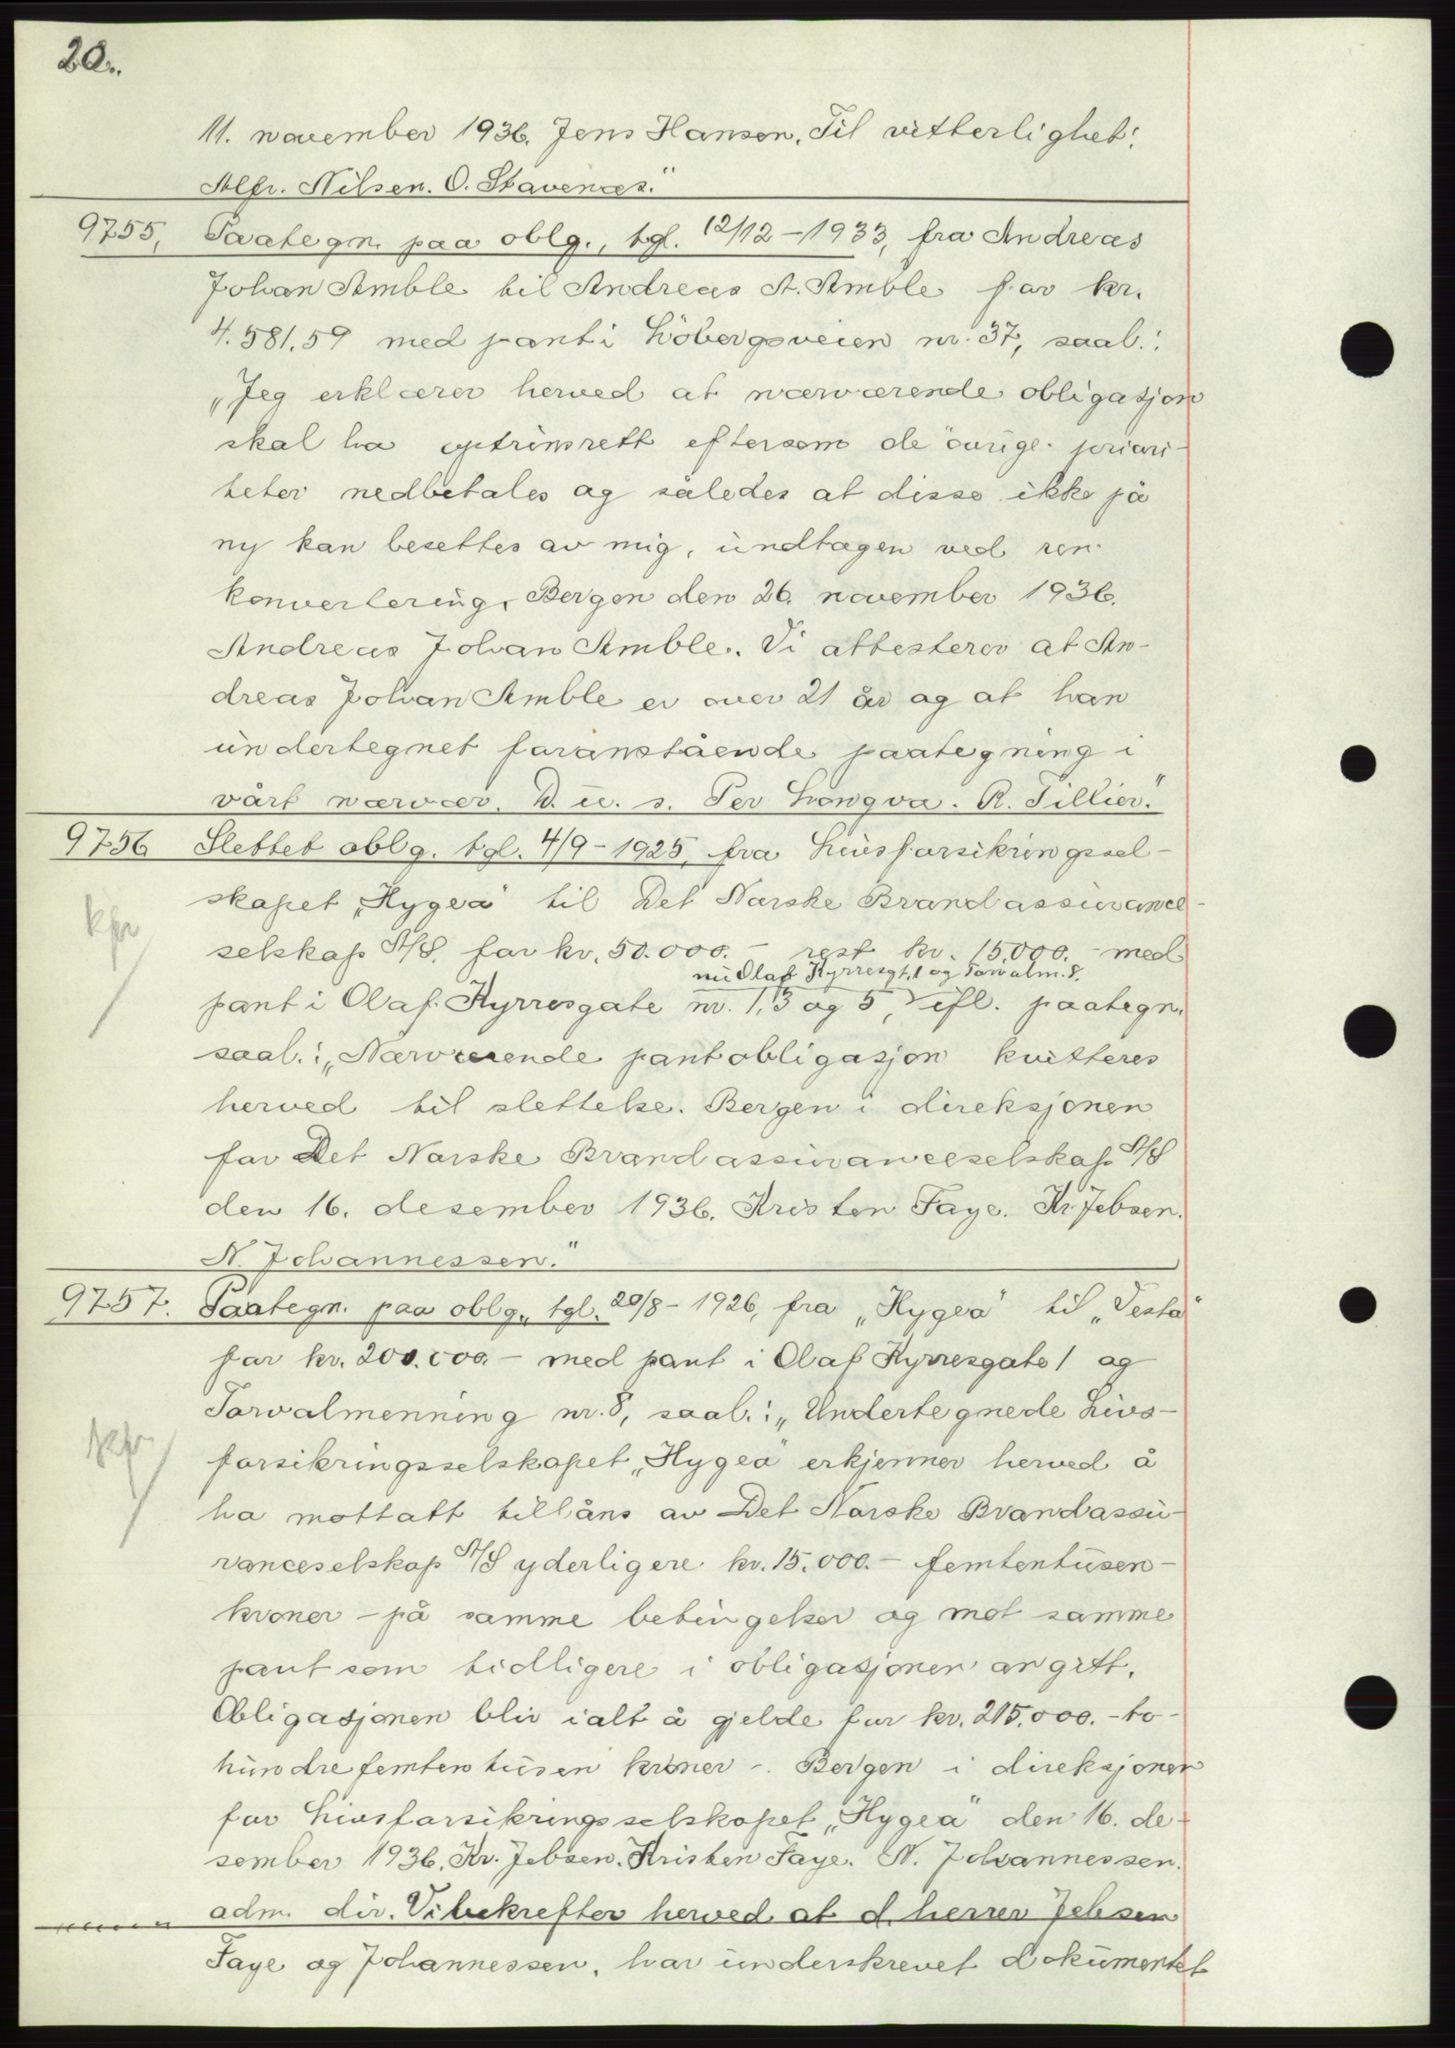 20.
11. november 1936. Jens Hansen. Til vitterlighet:
Alfr. Nilsen. O. Stavenes."
9755, Paategn. paa oblg., tgl. 12/12-1933, fra Andreas
Johan Amble til Andreas A. Amble for kr.
4.581.59 med pant i Löbergsveien nr. 37, saal.:
„Jeg erklærer herved at nærværende obligasjon
skal ha optrinsrett eftersom de övrige priori-
teter nedbetales og således at disse ikke på
ny kan besettes av mig, undtagen ved ren
konvertering. Bergen den 26. november 1936.
Andreas Johan Amble. Vi attesterer at An-
dreas Johan Amble er over 21 år og at han
undertegnet foranstående paategning i
vårt nærvær. D. u. s. Per Longva. R. Tillier."
9756 Slettet oblg. tgl. 4/9-1925, fra Livsforsikringssel-
skapet „Hygea" til Det Norske Brandassurance-
kpr
selskap A/S. for kr. 50.000.- rest kr. 15.000.- med
nu Olaf Kyrresgt. 1 og Torvalm. 8.
pant i Olaf Kyrresgate nr. 1, 3 og 5, ifl. paategn.
saal.: „Nærværende pantobligasjon kvitteres
herved til slettelse. Bergen i direksjonen
for Det Norske Brandassuranceselskap A/S
den 16. desember 1936. Kristen Faye. Kr. Jebsen.
N. Johannessen."
9757. Paategn. paa oblg., tgl. 20/8-1926, fra „Hygea" til „Vesta"
for kr. 200.000.- med pant i Olaf Kyrresgate 1 og
Torvalmenning nr. 8, saal.: „Undertegnede Livs-
kpr
forsikringsselskapet „Hygea" erkjenner herved å
ha mottatt tillåns av Det Norske Brandassu-
ranceselskap A/S yderligere kr. 15.000.- femtentusen-
kroner - på samme betingelser og mot samme
pant som tidligere i obligasjonen angitt.
Obligasjonen blir ialt å gjelde for kr. 215.000.- to-
hundrefemtentusen kroner -. Bergen i direksjonen
for Livsforsikringsselskapet „Hygea" den 16. de-
sember 1936. Kr. Jebsen. Kristen Faye. N. Johannessen.
adm. dir. Vi bekrefter herved at d. herrer Jebsen
Faye og Johannessen, har underskrevet dokumentet